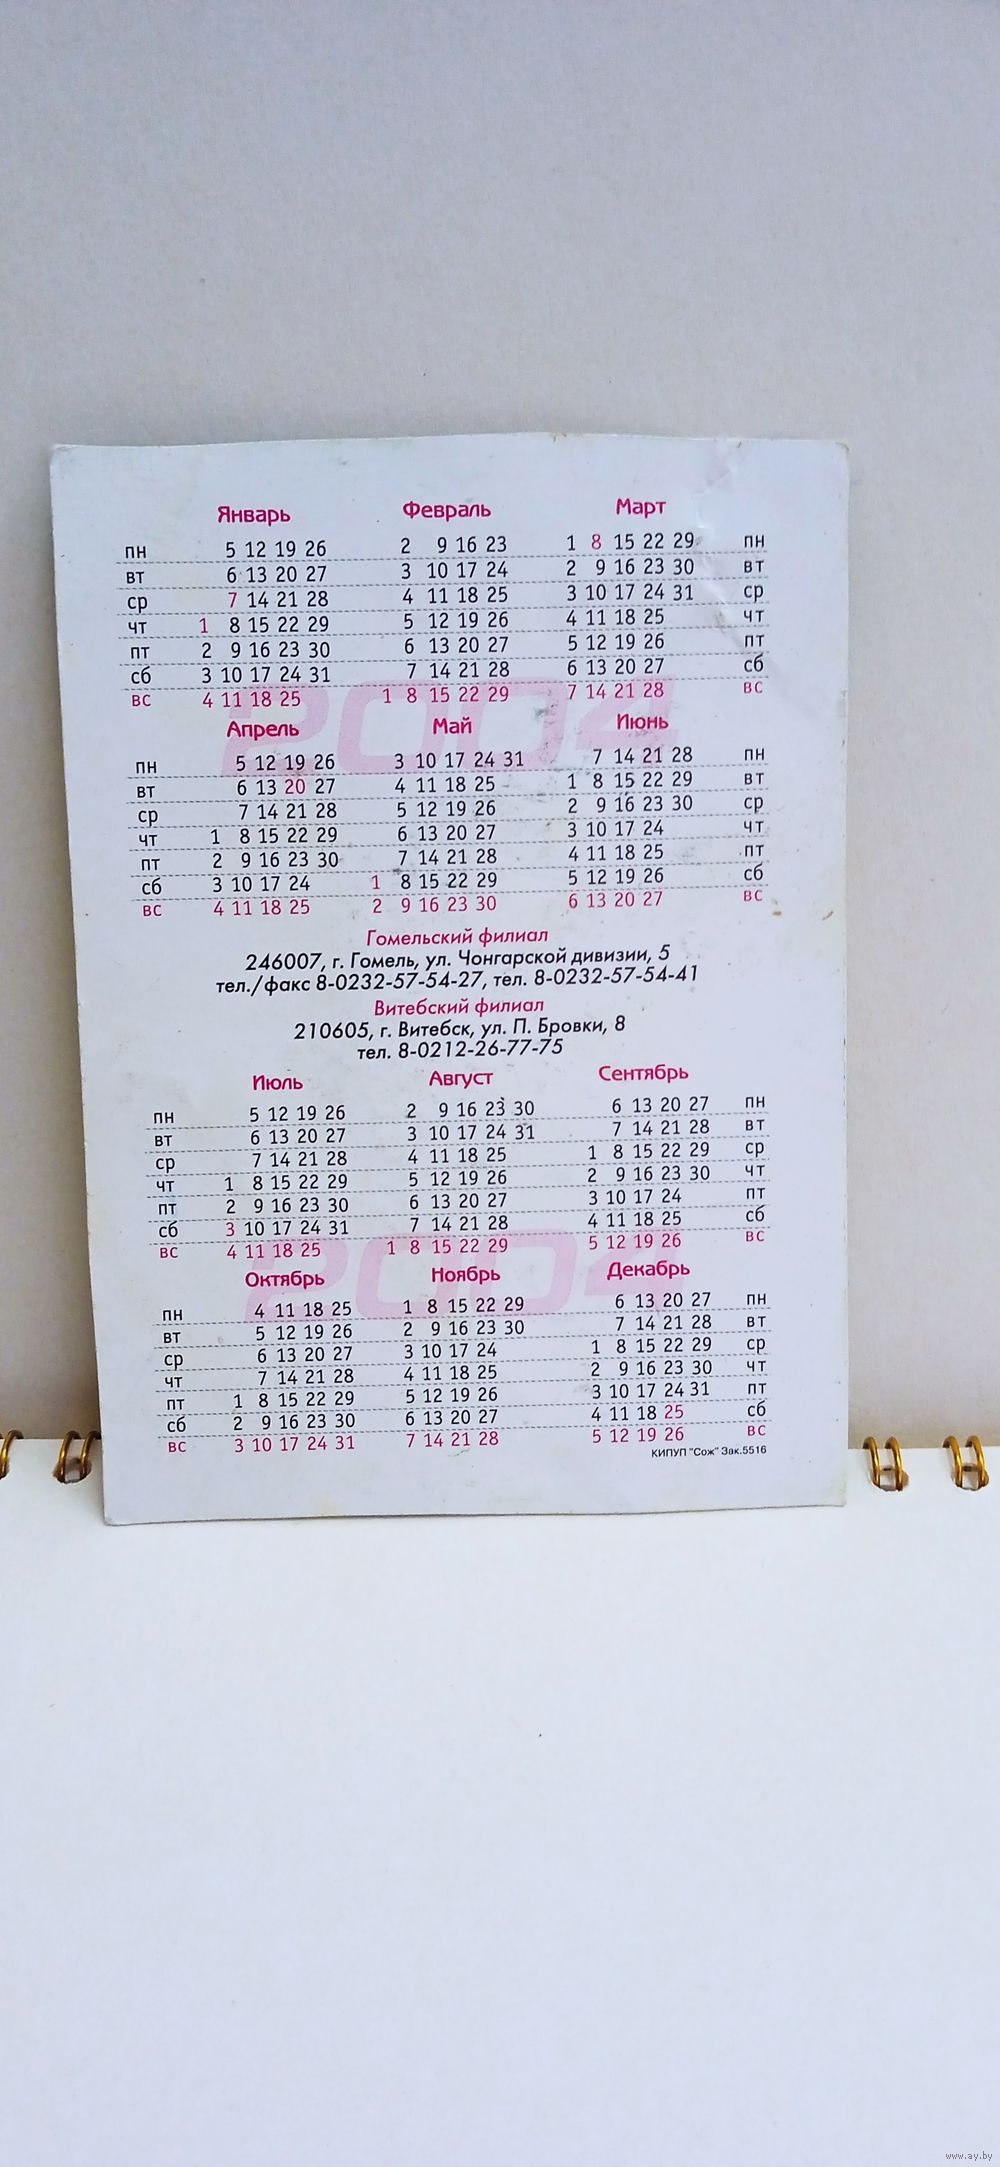 Январь Февраль Март
пн 5 12 19 26 2 9 16 23 1 8 15 22 29 пн
вт 6 13 20 27 3 10 17 24 2 9 16 23 30 вт
ср 7 14 21 28 4 11 18 25 3 10 17 24 31 ср
чт 1 8 15 22 29 5 12 19 26 4 11 18 25 чт
пт 2 9 16 23 30 6 13 20 27 5 12 19 26 пт
сб 3 10 17 24 31 7 14 21 28 6 13 20 27 сб
вс 4 11 18 25 1 8 15 22 29 7 14 21 28 вс
2004
Апрель Май Июнь
пн 5 12 19 26 3 10 17 24 31 7 14 21 28 пн
вт 6 13 20 27 4 11 18 25 1 8 15 22 29 вт
ср 7 14 21 28 5 12 19 26 2 9 16 23 30 ср
чт 1 8 15 22 29 6 13 20 27 3 10 17 24 чт
пт 2 9 16 23 30 7 14 21 28 4 11 18 25 пт
сб 3 10 17 24 1 8 15 22 29 5 12 19 26 сб
вс 4 11 18 25 2 9 16 23 30 6 13 20 27 вс
Гомельский филиал
246007, г. Гомель, ул. Чонгарской дивизии, 5
тел./факс 8-0232-57-54-27, тел. 8-0232-57-54-41
Витебский филиал
210605, г. Витебск, ул. П. Бровки, 8
тел. 8-0212-26-77-75
Июль Август Сентябрь
пн 5 12 19 26 2 9 16 23 30 6 13 20 27 пн
вт 6 13 20 27 3 10 17 24 31 7 14 21 28 вт
ср 7 14 21 28 4 11 18 25 1 8 15 22 29 ср
чт 1 8 15 22 29 5 12 19 26 2 9 16 23 30 чт
пт 2 9 16 23 30 6 13 20 27 3 10 17 24 пт
сб 3 10 17 24 31 7 14 21 28 4 11 18 25 сб
вс 4 11 18 25 1 8 15 22 29 5 12 19 26 вс
2004
Октябрь Ноябрь Декабрь
пн 4 11 18 25 1 8 15 22 29 6 13 20 27 пн
вт 5 12 19 26 2 9 16 23 30 7 14 21 28 вт
ср 6 13 20 27 3 10 17 24 1 8 15 22 29 ср
чт 7 14 21 28 4 11 18 25 2 9 16 23 30 чт
пт 1 8 15 22 29 5 12 19 26 3 10 17 24 31 пт
сб 2 9 16 23 30 6 13 20 27 4 11 18 25 сб
вс 3 10 17 24 31 7 14 21 28 5 12 19 26 вс
КИПУП "Сож" Зак.5516
www.ay.by